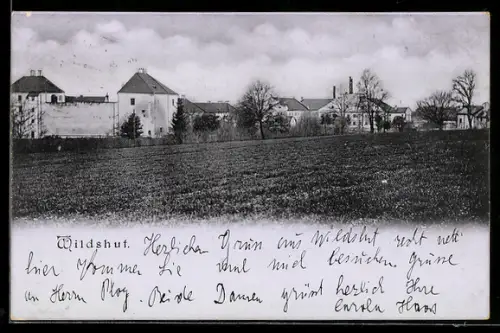 Wildshut. Herzlichen Gruss aus Wildshut recht nett
hier kommen Sie und mich besuchen. Grüsse
an Herrn Beide Damen grüsst herzlich Ihre
Haas